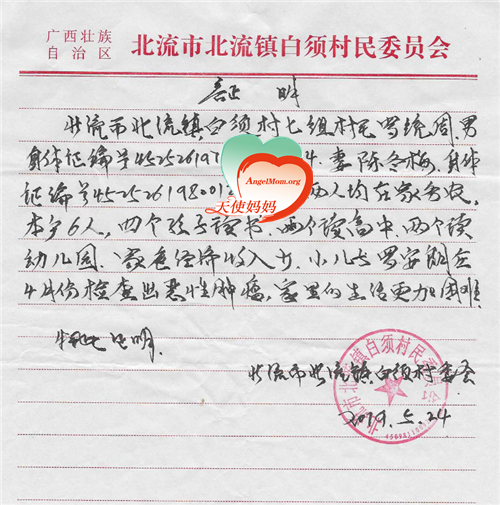 广西壮族
自治区
北流市北流镇白须村民委员会
证 明
北流市北流镇白须村七组村民罗统周,男
身体证编号452526197 4.妻陈冬梅,身体
证编号45252619820013 两人均在家务农,
本户6人,四个孩子读书,两个读高中,两个读
幼儿园,家庭经济收入少,小儿子罗安朗在
4月份检查出恶性肿瘤,家里的生活更加困难.
特此证明.
北流市北流镇白须村委会
2019.5.24
AngelMom.org
天使妈妈
北流市北流镇白须村民委员会